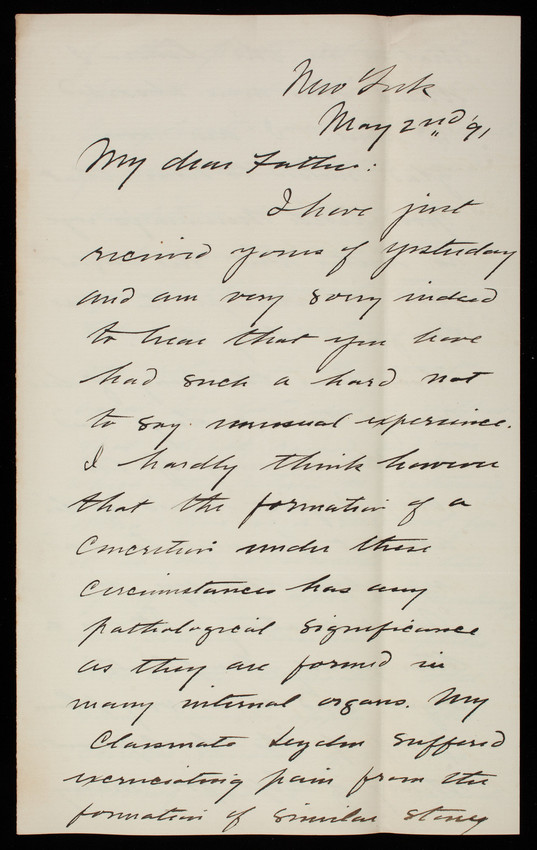 New York
May 2nd '91
My dear Father:
I have just
received yours of yesterday
and am very sorry indeed
to hear that you have
had such a hard not
to say unusual experience.
I hardly think however
that the formation of a
concretion under these
circumstances has any
pathological significance
as they are formed in
many internal organs. My
classmate Leyden suffered
excruciating pain from the
formation of similar stones